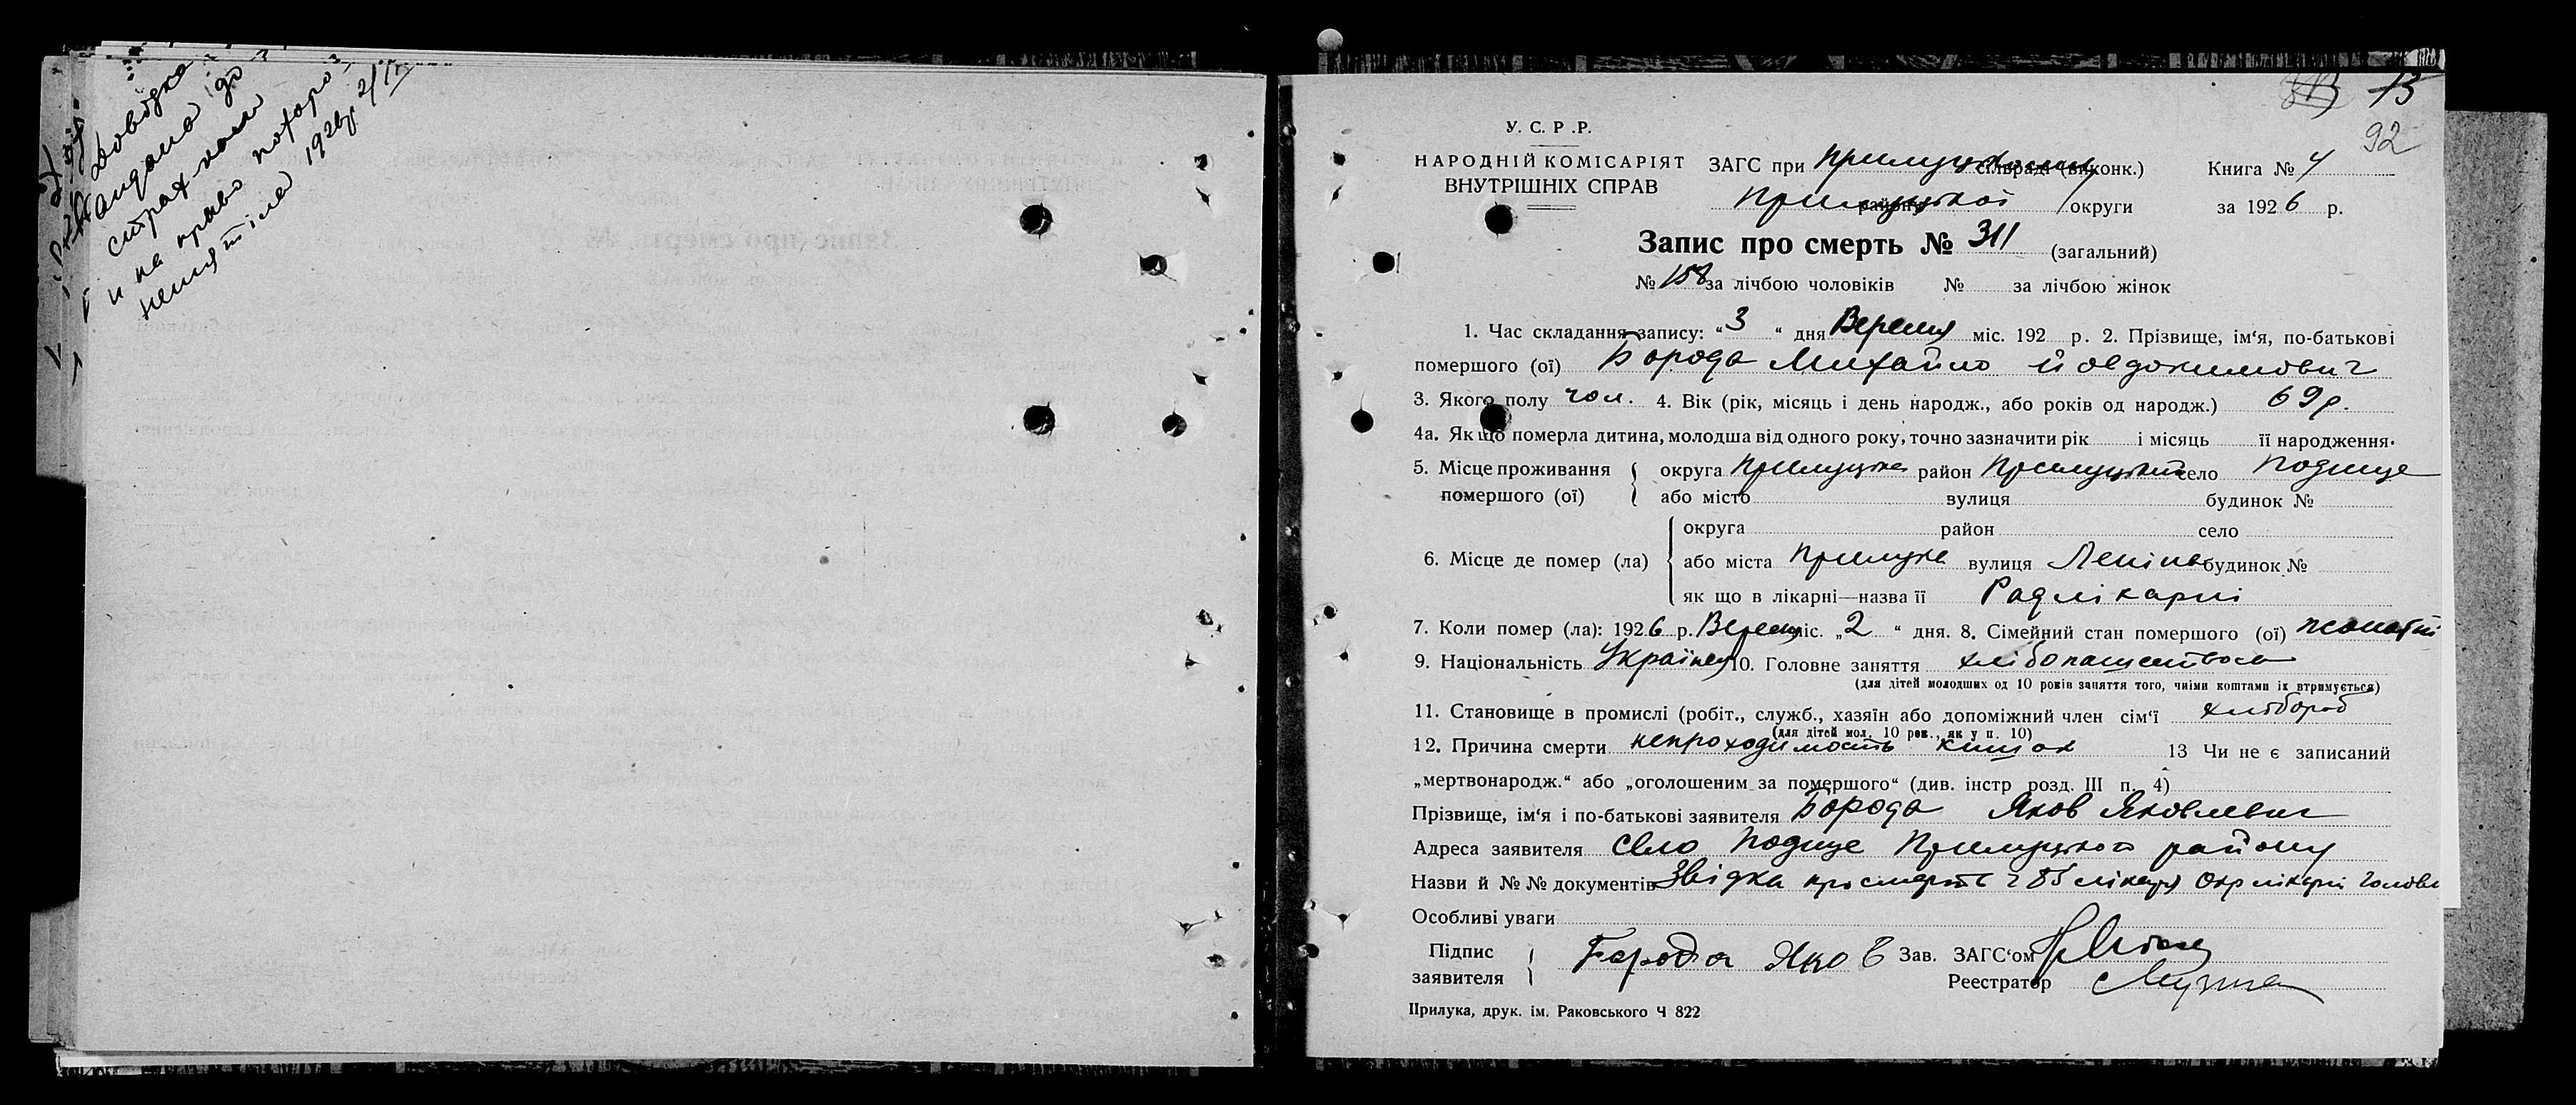 Довідка
видана до
страх каси
и на право похоро
нения тіла 1926 р. 2/IX
13
92
У. С. Р. Р.
НАРОДНІЙ КОМІСАРІЯТ
ВНУТРІШНІХ СПРАВ
ЗАГС при Прилуцькому сільраді (виконк.) Книга № 4
Прилуцької району округи за 1926 р.
Запис про смерть № 311 (загальний)
№ 158 за лічбою чоловіків № за лічбою жінок
1. Час складання запису: “3“ дня Вересня міс. 192 р. 2. Прізвище, ім‘я, по-батькові
помершого (ої) Борода Михайло Йовдокимович
3. Якого полу чол. 4. Вік (рік, місяць і день народж., або років од народж.) 69 р.
4а. Як що померла дитина, молодша від одного року, точно зазначити рік і місяць її народження.
5. Місце проживання помершого (ої) округа Прилуцька район Прилуцький село Подище
або місто вулиця будинок №
округа район село
6. Місце де помер (ла) або міста Прилука вулиця Леніна будинок №
як що в лікарні—назва її Радлікарні
7. Коли помер (ла): 1926 р. Вересня міс. „2“ дня. 8. Сімейний стан помершого (ої) жонатий
9. Національність Українец 10. Головне заняття хлібопашество
(для дітей молодших од 10 років заняття того, чиїми коштами їх втримується)
11. Становище в промислі (робіт., служб., хазяїн або допоміжний член сім‘ї хлібороб
(для дітей мол. 10 рок., як у п. 10)
12. Причина смерти непроходимость кишок 13 Чи не є записаний
„мертвонародж.“ або „оголошеним за помершого“ (див. інстр розд. III п. 4)
Прізвище, ім‘я і по-батькові заявителя Борода Яков Яковлевич
Адреса заявителя село Подище Прилуцького району
Назви й №№ документів Звідка про смерть Окрлікарні
Особливі уваги
Підпис заявителя Борода Яков Зав. ЗАГС‘ом
Реестратор
Прилука, друк. ім. Раковського Ч 822